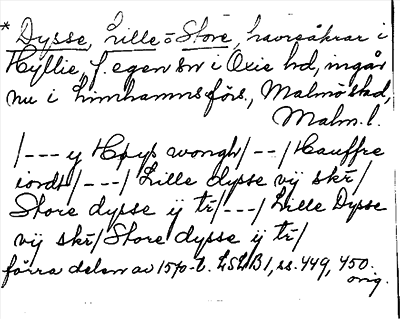 * Dysse, Lille o Store, havresåkrar i
Hyllie, f. egen sn i Oxie hd, ingår
nu i Limhamns förs., Malmö stad,
Malm. l.
/---y Høys wongh/--/Hauffre
iordt/---/ Lille dysse vij skr/
Store dysse ij tr/---/ Lille Dysse
vij skr/ Store dysse ij tr/
förra delen av 1570-t. LSLB1, ss. 449, 450.
orig.